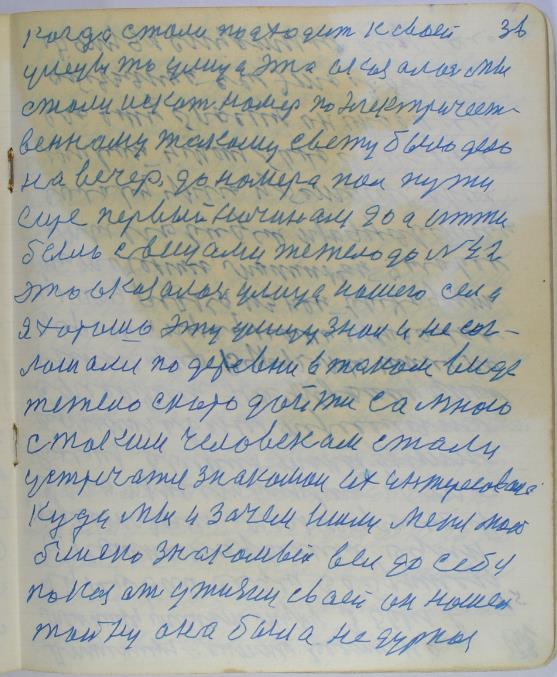 когда стали подходит к своей 36
улецы то улица эта оказалася мы
стали искат номер по электричест-
венному такому свету было дело
на вечер, до номера пол пути
еще первый начинам до а итти
быль с вещами тежело до № 42
это оказалоя улица нашего села
я хорошо эту улицу знал и не сог-
лошали по деревни в таком виде
тежело скоро дойти самною
стаким человекам стали
устречати знакомои их интересовала
куда мы и зачем шли меня
знакомый вел до себу
показат ужизни своей он нашел
тайну она была не дурная